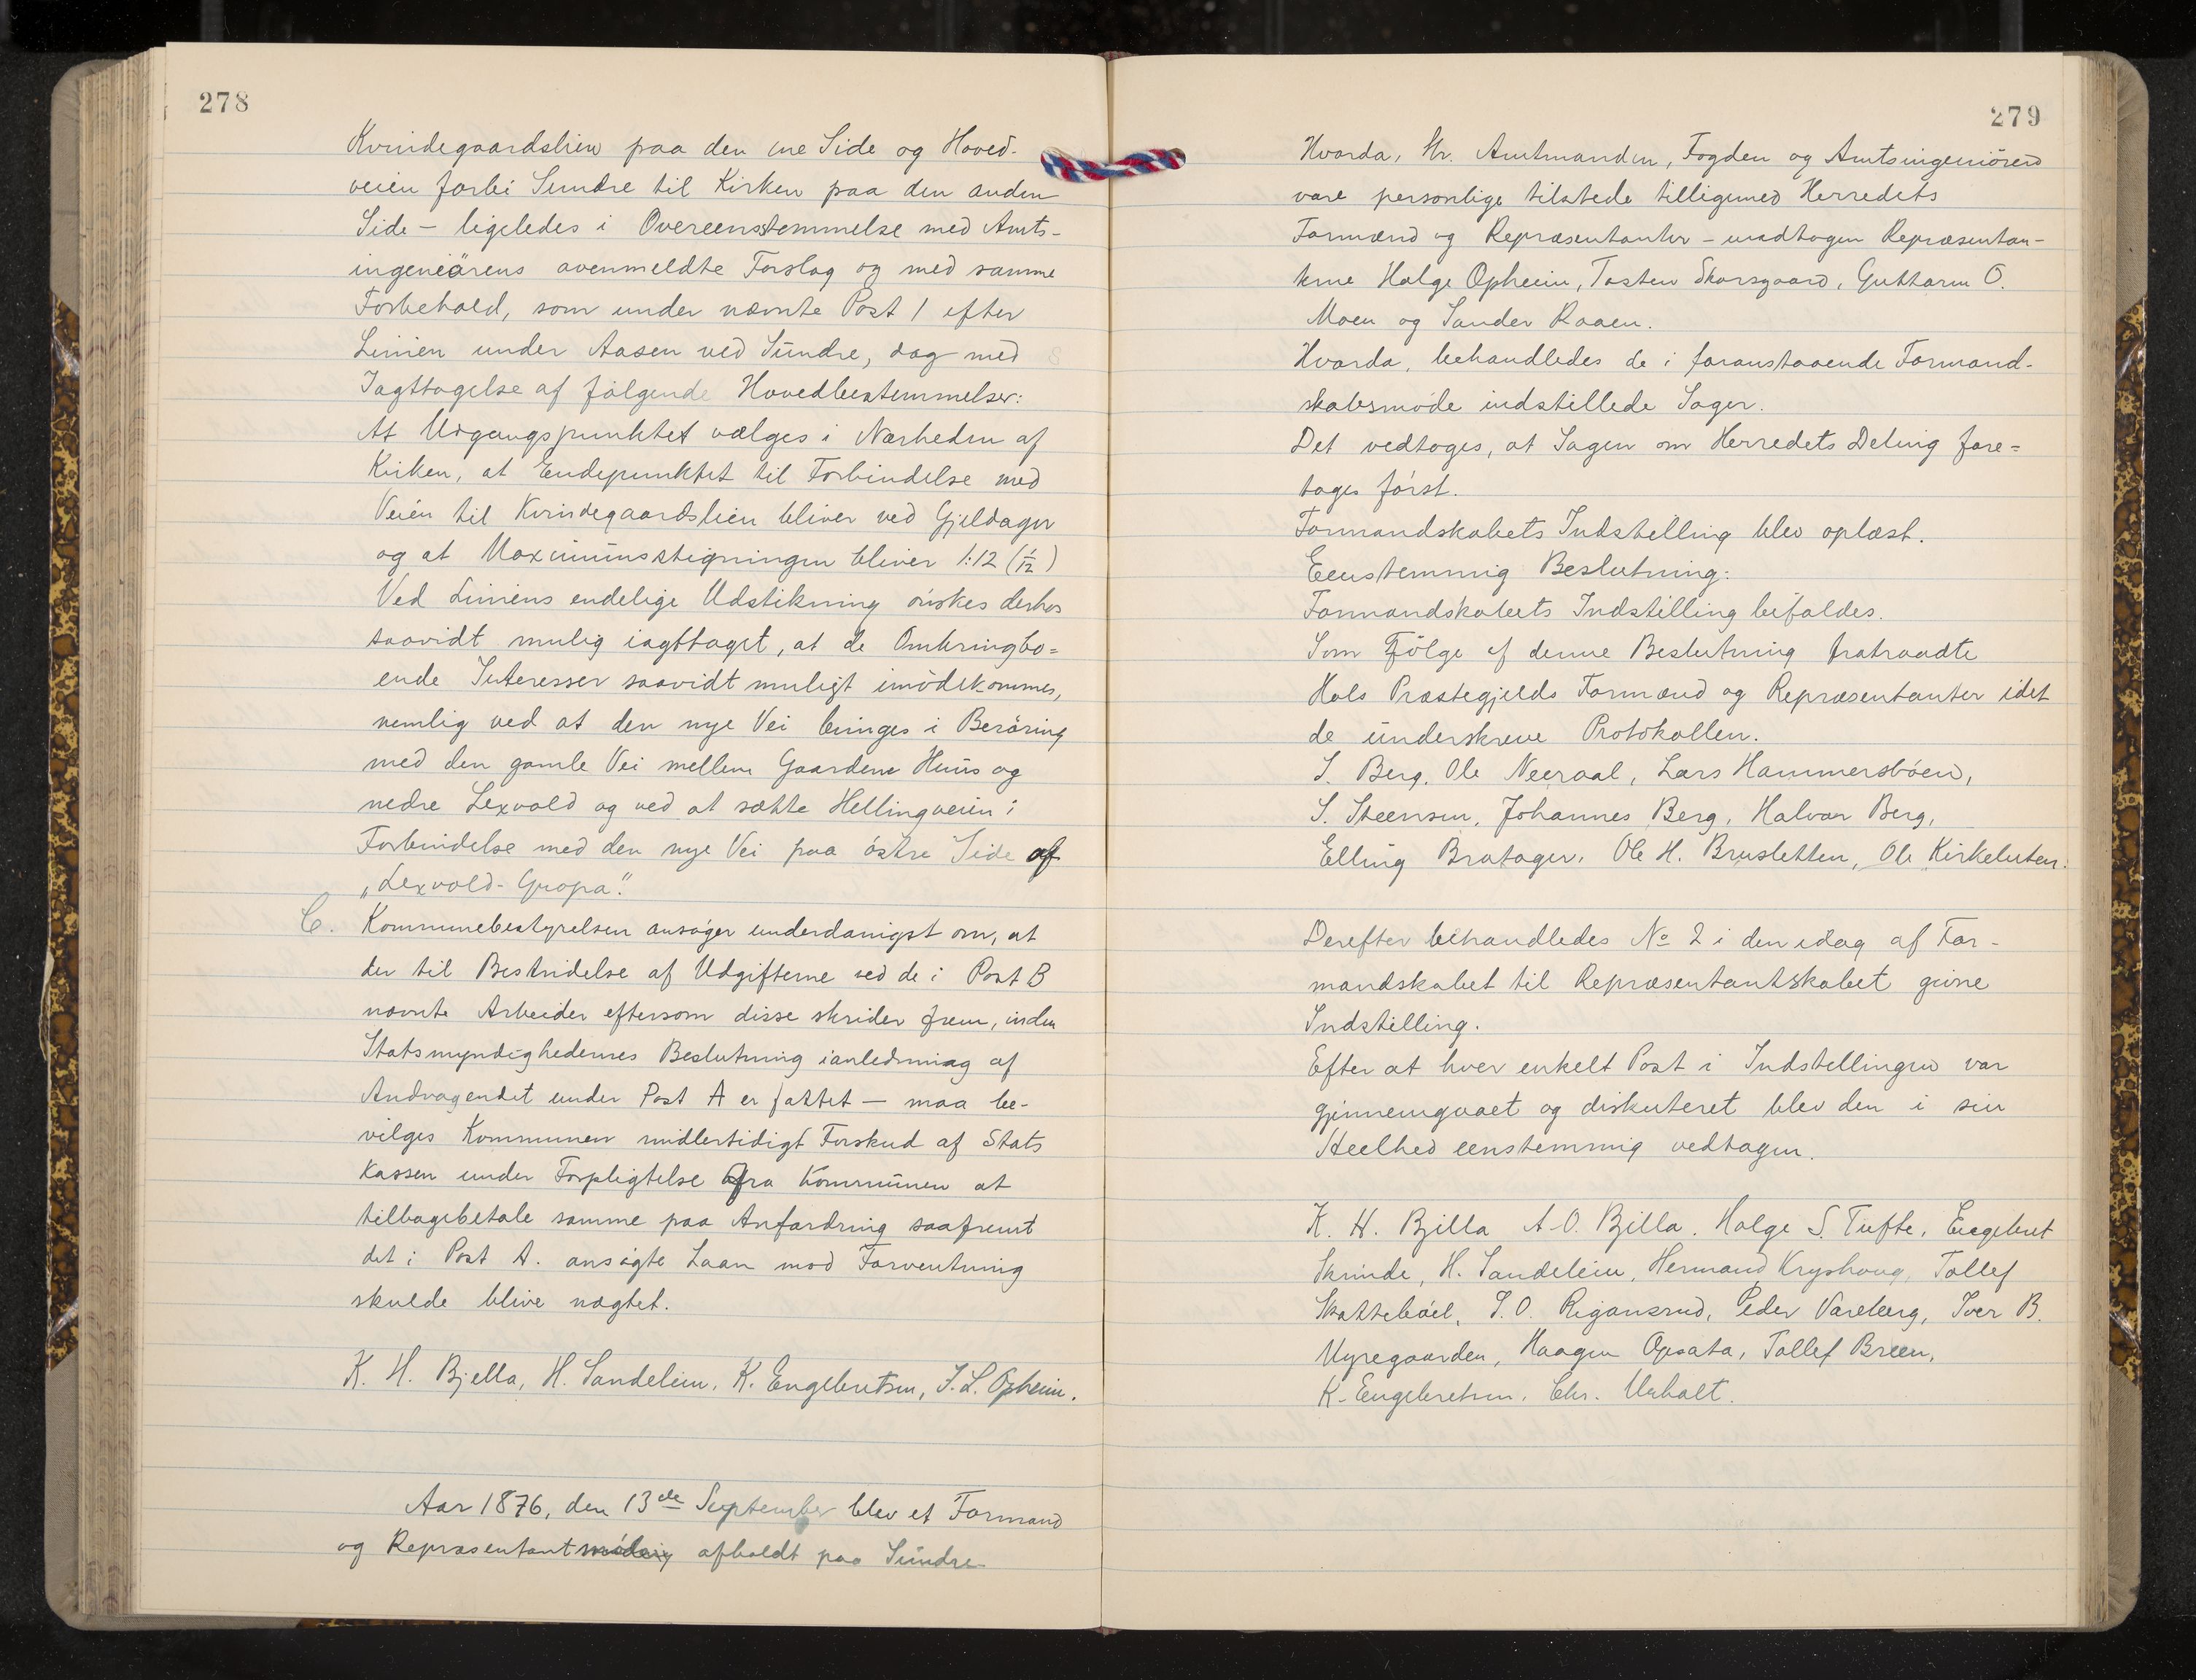 278
Kvindegaardslien paa den ene Side og Hoved-
veien forbi Sundre til Kirken paa den anden
Side - ligeledes i Overeensstemmelse med Amts-
ingeniörens ovenmeldte Forslag og med samme
Forbehold, som under nævnte Post 1 efter
Linien under Aasen ved Sundre, dog med
Iagttagelse af følgende Hovedbestemmelser:
At Udgangspunktet vælges i Nærheden af
Kirken, at Endepunktet til Forbindelse med
Veien til Kvindegaardslien bliver ved Gjeldager
og at Maximumsstigningen bliver 1:12 (1/12)
Ved Liniens endelige Udstikning ónskes derhos
saavidt mulig iagttaget, at de Omkringbo=
ende Interesser saavidt muligt imódekommes,
nemlig ved at den nye Vei bringes i Beröring
med den gamle Vei mellem Gaardene Huus og
nedre Lexvold og ved at sætte Hellingveien i
Forbindelse med den nye Vei paa óstre Side af
"Lexvold-Gropa".
C. Kommunebestyrelsen ansóger underdanigst om, at
der til Bestridelse af Udgifterne ved de i Post B
nævnte Arbeider eftersom disse skrider frem, inden
Statsmyndighedernes Beslutning ianledning af
Andragendet under Post A er fattet - maa be-
vilges Kommunen midlertidigt Forskud af Stats
kassen under Forpligtelse fra Kommunen at
tilbagebetale samme paa Anfordring saafremt
det i Post A. ansógte Laan mod Forventning
skulde blive nægtet.
K. H. Bjella, H. Sandelein, K. Engebretsen, T. L. Opheim.
Aar 1876, den 13de September blev et Formand
og Repræsentantmöde afholdt paa Sundre
279
Hvorda, Hr. Amtmanden, Fogden og Amtsingeniören
vare personlige tilstede tilligemed Herredets
Formænd og Repræsentanter - undtagen Repræsentan-
terne Halge Opheim, Tosten Skarsgaard, Guttorm O.
Moen og Sander Raaen.
Hvorda, behandledes de i foranstaaende Formand-
skabsmóde indstillede Sager.
Det vedtoges, at Sagen om Herredets Deling fore=
tages fórst.
Formandskabets Indstilling blev oplæst.
Eenstemmig Beslutning:
Formandskabets Indstilling bifaldes.
Som Fölge af denne Beslutning fratraadte
Hols Præstegjelds Formænd og Repræsentanter idet
de underskreve Protokollen.
S. Berg, Ole Neeraal, Lars Hammersbóen,
S. Steensen, Johannes Berg, Halvor Berg,
Elling Bratager, Ole H. Brusletten, Ole Kirkebuten.
Derefter behandledes No 2 i den idag af For-
mandskabet til Repræsentantskabet givne
Indstilling.
Efter at hver enkelt Post i Indstillingen var
gjennemgaaet og diskuteret blev den i sin
Heelhed eenstemmig vedtagen.
K. H. Bjella A-O. Bjella. Halge S. Tufte, Engebret
Skrinde, H. Sandelein, Hermand Kryshoug, Tollef
Skatteböel, S. O. Rigansrud, Peder Vareberg, Iver B.
Myregaarden, Haagen Opsata, Tollef Breen,
K. Engebretsen. Chr. Unhalt.